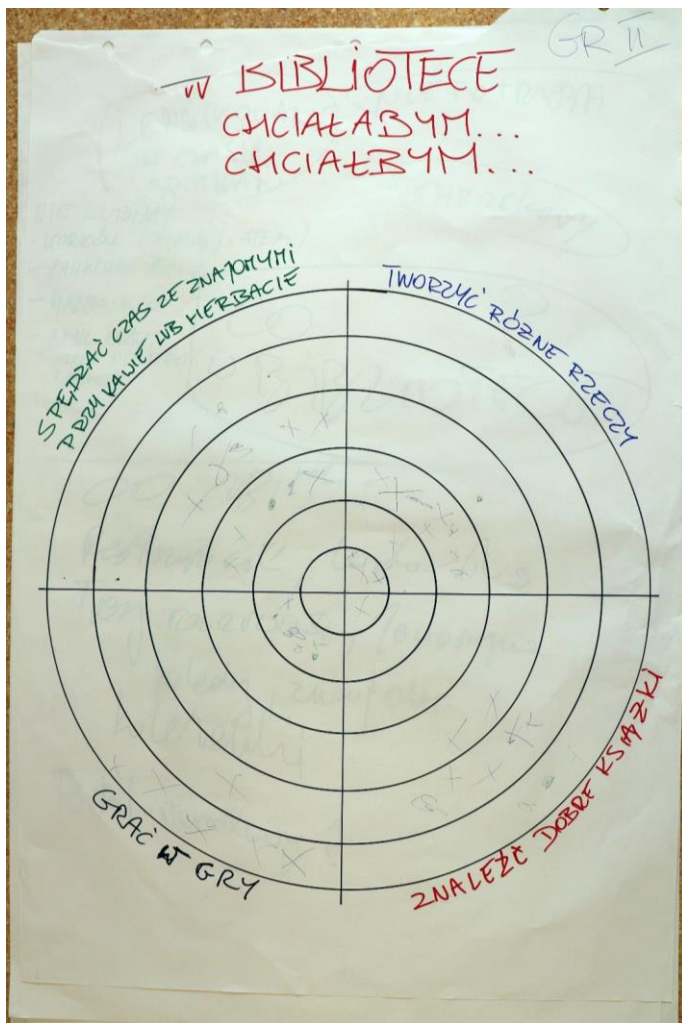 GR II
W BIBLIOTECE
CHCIAŁABYM...
CHCIAŁBYM...
SPĘDZAĆ CZAS ZE ZNAJOMYMI
PRZY KAWIE LUB HERBACIE
TWORZYĆ RÓŻNE RZECZY
GRAĆ W GRY
ZNALEŹĆ DOBRE KSIĄŻKI